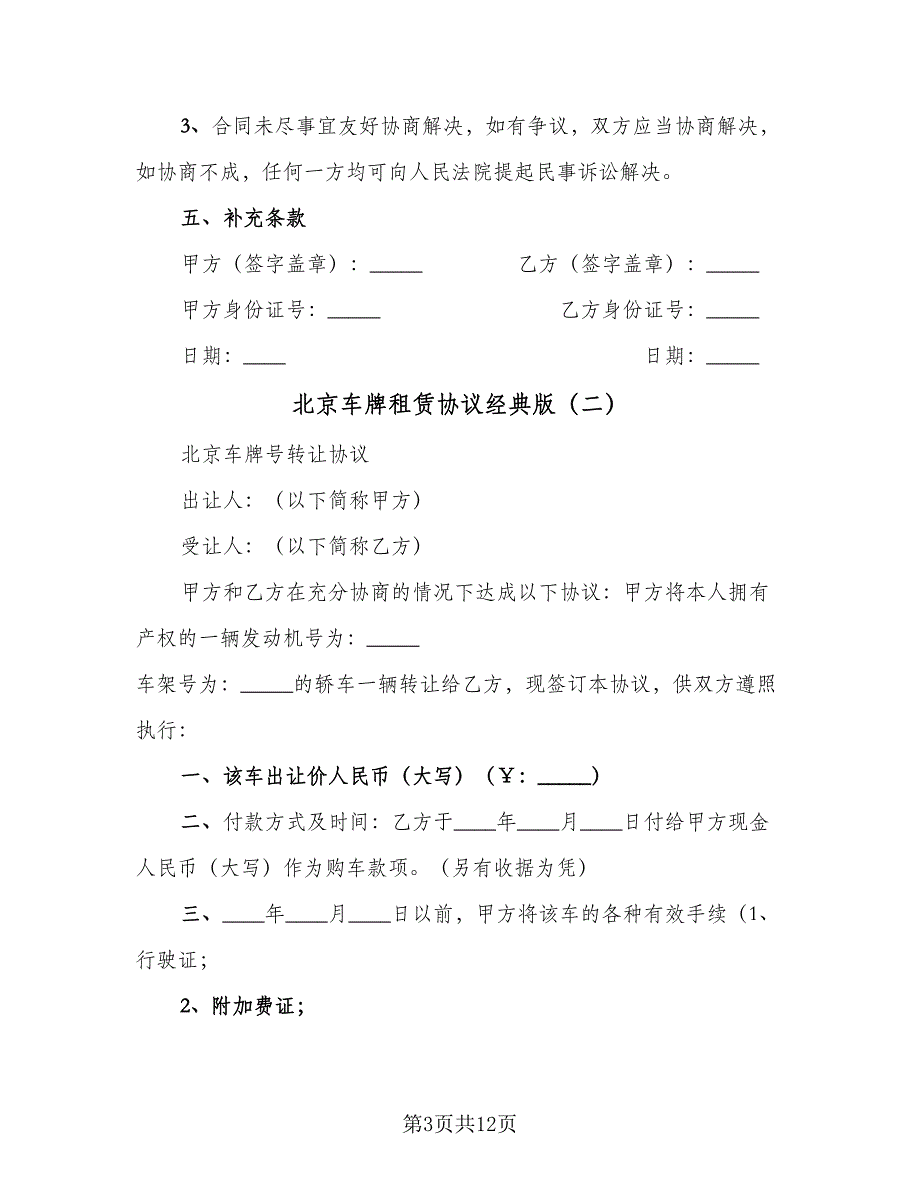 3、合同未尽事宜友好协商解决，如有争议，双方应当协商解决，
如协商不成，任何一方均可向人民法院提起民事诉讼解决。
五、补充条款
甲方（签字盖章）：_____ 乙方（签字盖章）：_____
甲方身份证号：_____ 乙方身份证号：_____
日期：____ 日期：_____
北京车牌租赁协议经典版（二）
北京车牌号转让协议
出让人：（以下简称甲方）
受让人：（以下简称乙方）
甲方和乙方在充分协商的情况下达成以下协议：甲方将本人拥有
产权的一辆发动机号为：_____
车架号为：_____的轿车一辆转让给乙方，现签订本协议，供双方遵照
执行：
一、该车出让价人民币（大写）（￥：_____）
二、付款方式及时间：乙方于____年____月____日付给甲方现金
人民币（大写）作为购车款项。（另有收据为凭）
三、____年____月____日以前，甲方将该车的各种有效手续（1、
行驶证；
2、附加费证；
第3页共12页